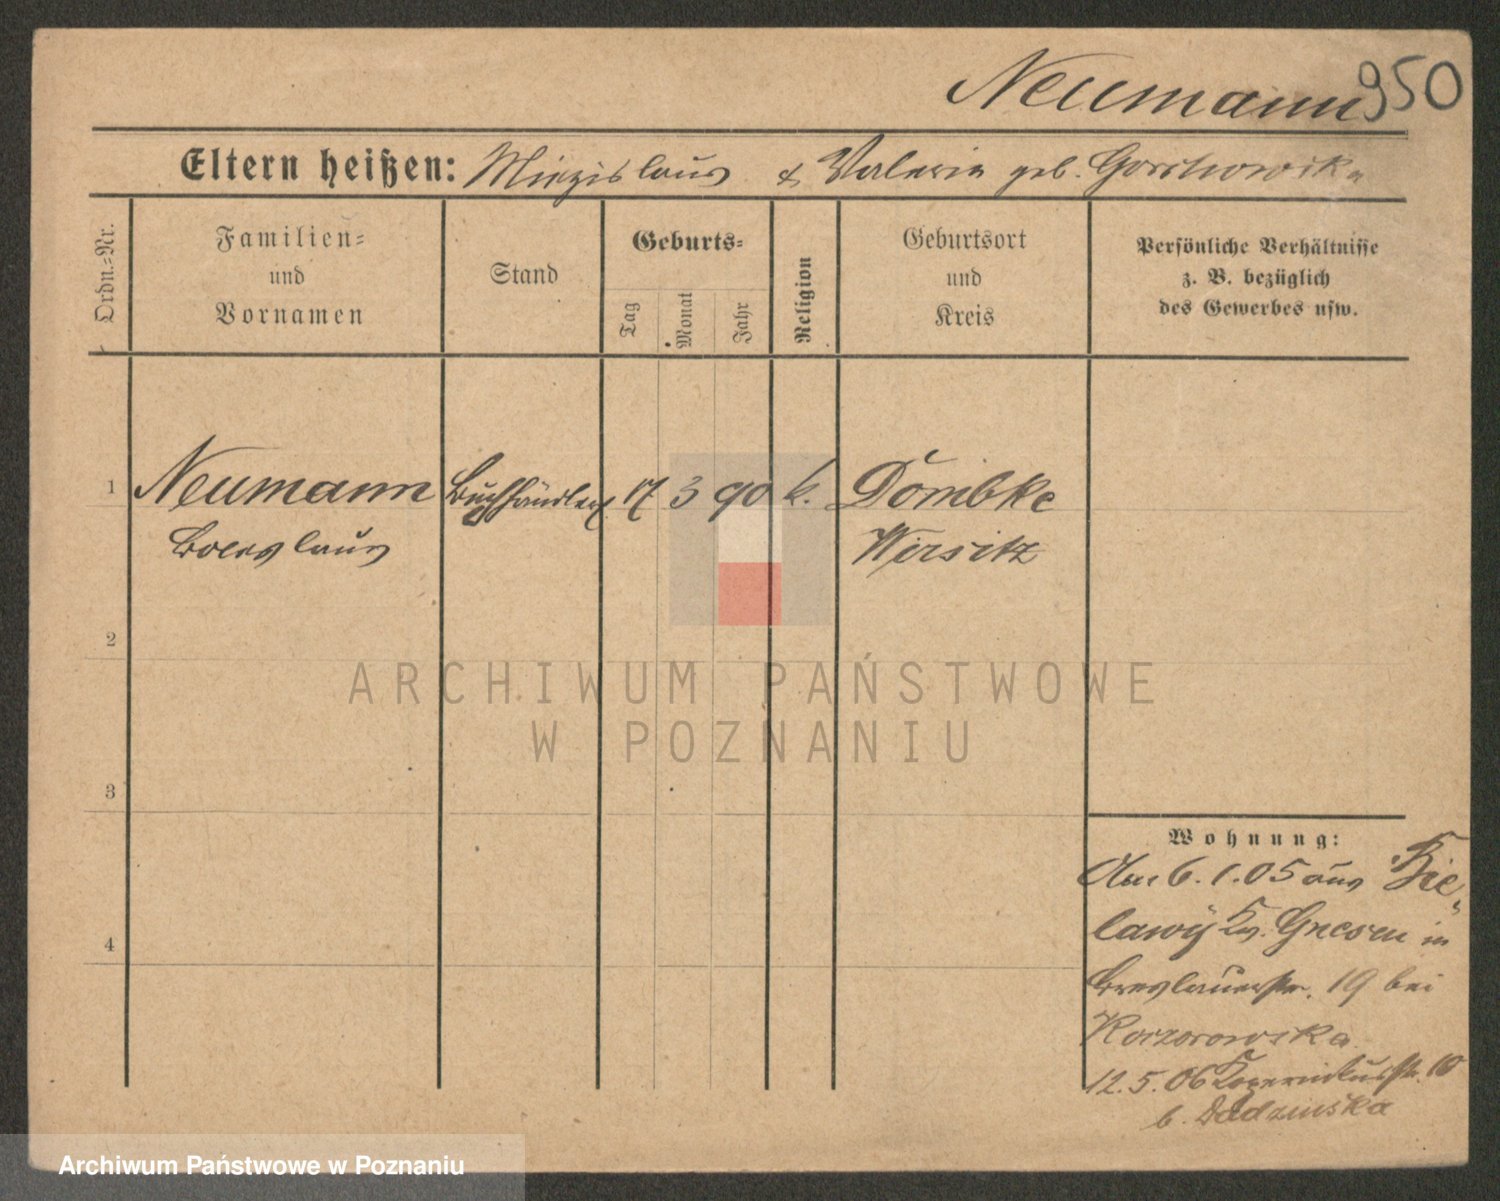 Neumann 950
Eltern heißen: Miezislaus & Valeria geb.
Ordn.-Nr.
Familien-
und
Vornamen
Stand
Geburts-
Tag
Monat
Jahr
Religion
Geburtsort
und
Kreis
Persönliche Verhältnisse
z. B. bezüglich
des Gewerbes usw.
1 Neumann Buchhändlerl. 17 3 90 k. Dombke
Boleslaus Wirsitz
2
3
4
Wohnung:
Am 6. 1. 05 aus Bie-
lawy Kr. Gnesen in
Breslauerstr. 19 bei
Koczorowska
12. 5. 06 Kopernikusstr. 10
b. Dudzinska
ARCHIWUM PAŃSTWOWE
W POZNANIU
Archiwum Państwowe w Poznaniu